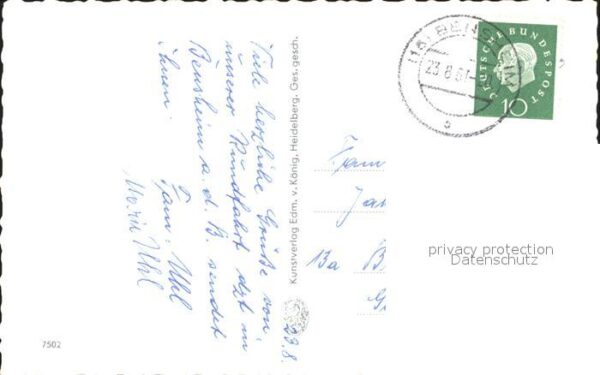 23.8.
Viele herzliche Grüße von
unserer Rundfahrt dzt in
Bensheim a. d. B. sendet
Ihnen
Fam. Uhl
Maria Uhl
Kunstverlag Edm. v. König, Heidelberg. Ges. gesch.
(16) BENSHEIM
23.8.61
DEUTSCHE BUNDESPOST
10
Fam
13a B
privacy protection
Datenschutz
7502